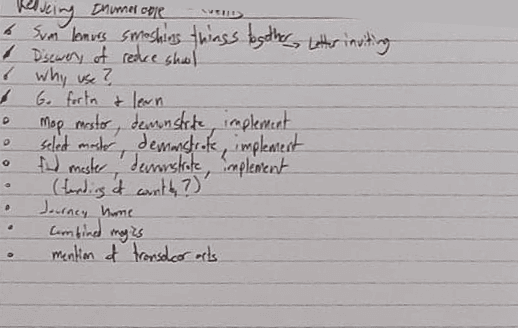 Reducing Enumerable
Sum lemurs smashing things together → Letter inviting
Discovery of reduce skool
Why use?
Go forth & learn
map master, demonstrate, implement
select master, demonstrate, implement
find master, demonstrate, implement
(
Journey home
Combined
mention of transducer arts